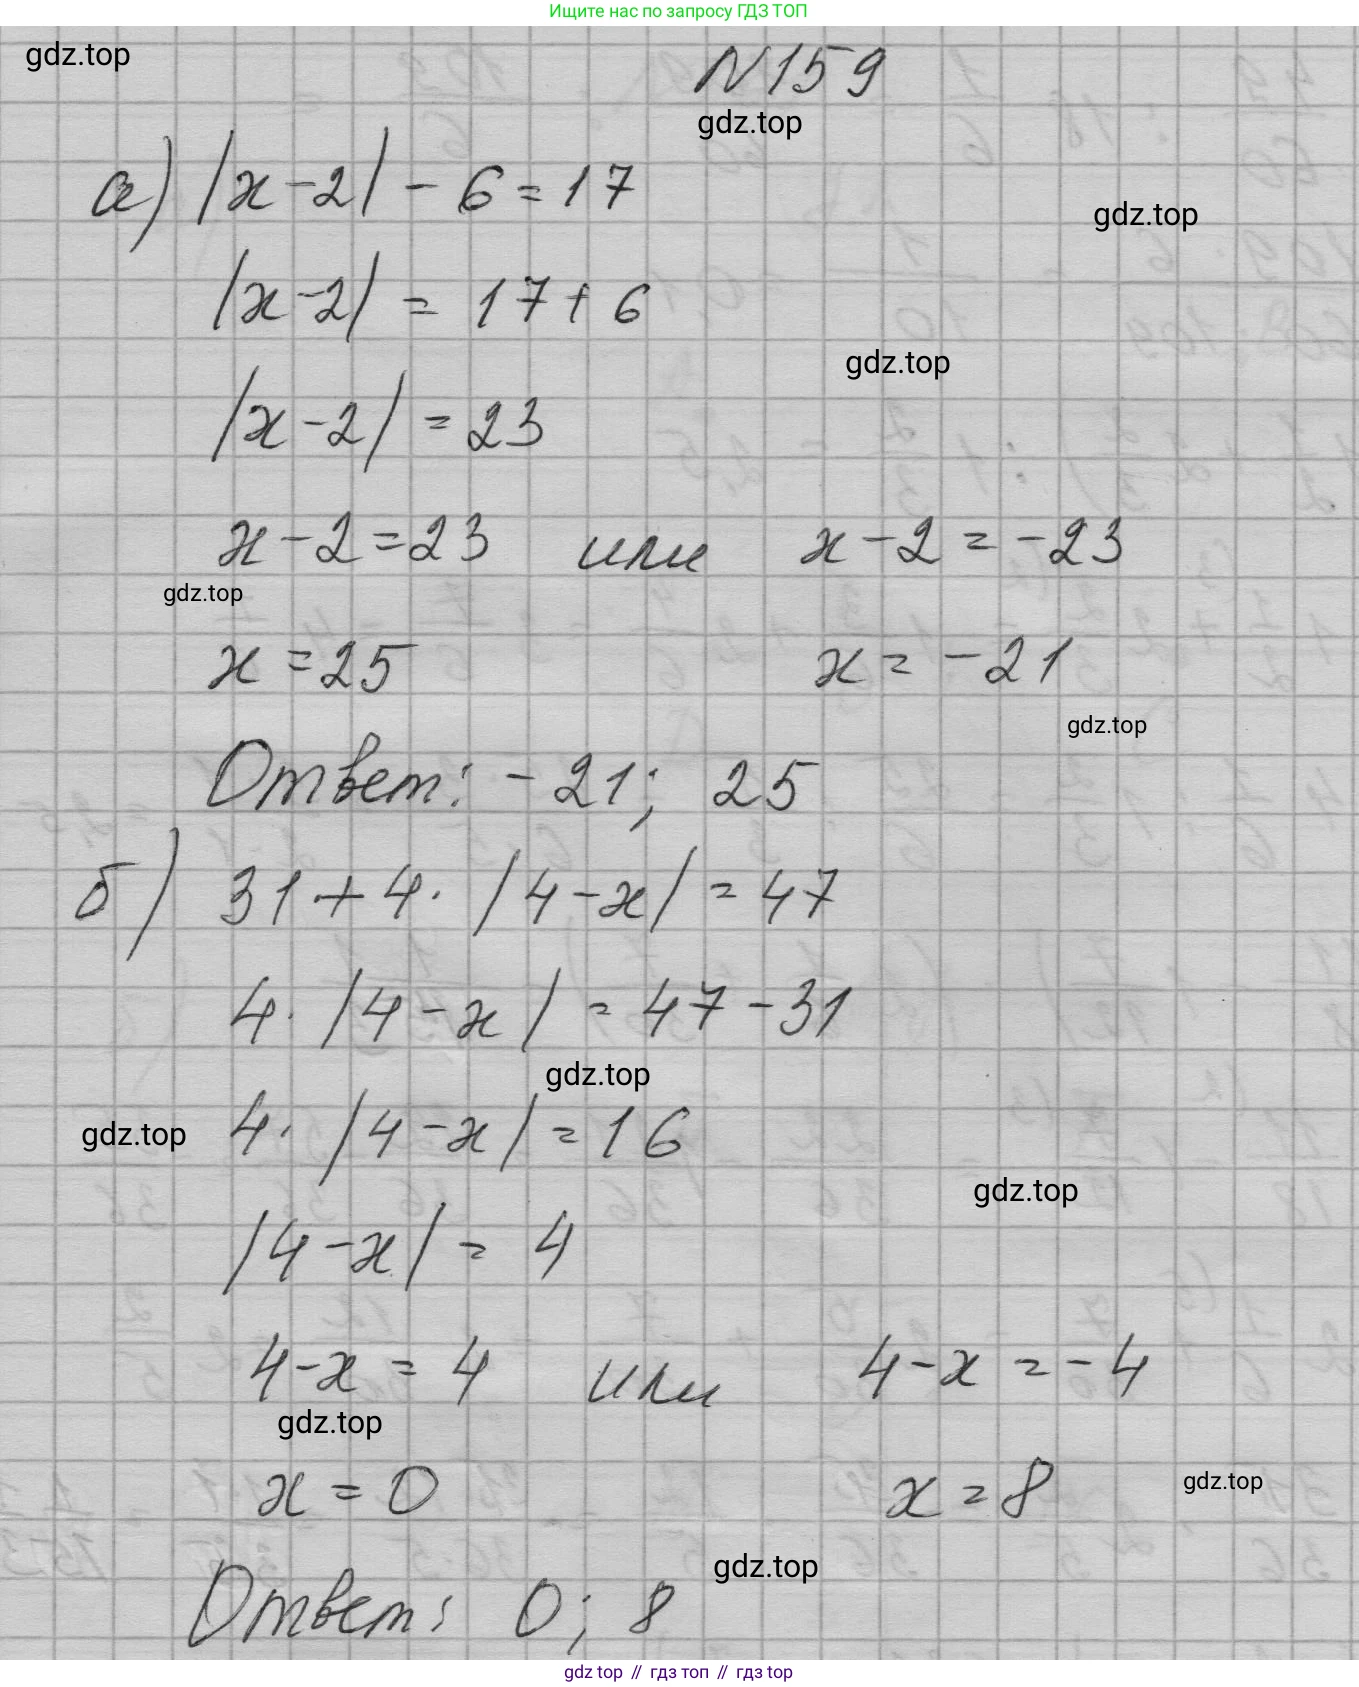 Ищите нас по запросу ГДЗ ТОП
gdz.top
N159
gdz.top
а) |x-2| - 6 = 17
gdz.top
|x-2| = 17+6
gdz.top
|x-2| = 23
x-2=23 или x-2 = -23
gdz.top
x = 25 x = -21
gdz.top
Ответ: -21; 25
б) 31+4·|4-x| = 47
4·|4-x| = 47-31
gdz.top
gdz.top 4·|4-x| = 16
gdz.top
|4-x| = 4
4-x = 4 или 4-x = -4
gdz.top
x = 0 x = 8 gdz.top
gdz.top
Ответ: 0; 8
gdz top // гдз топ // gdz top